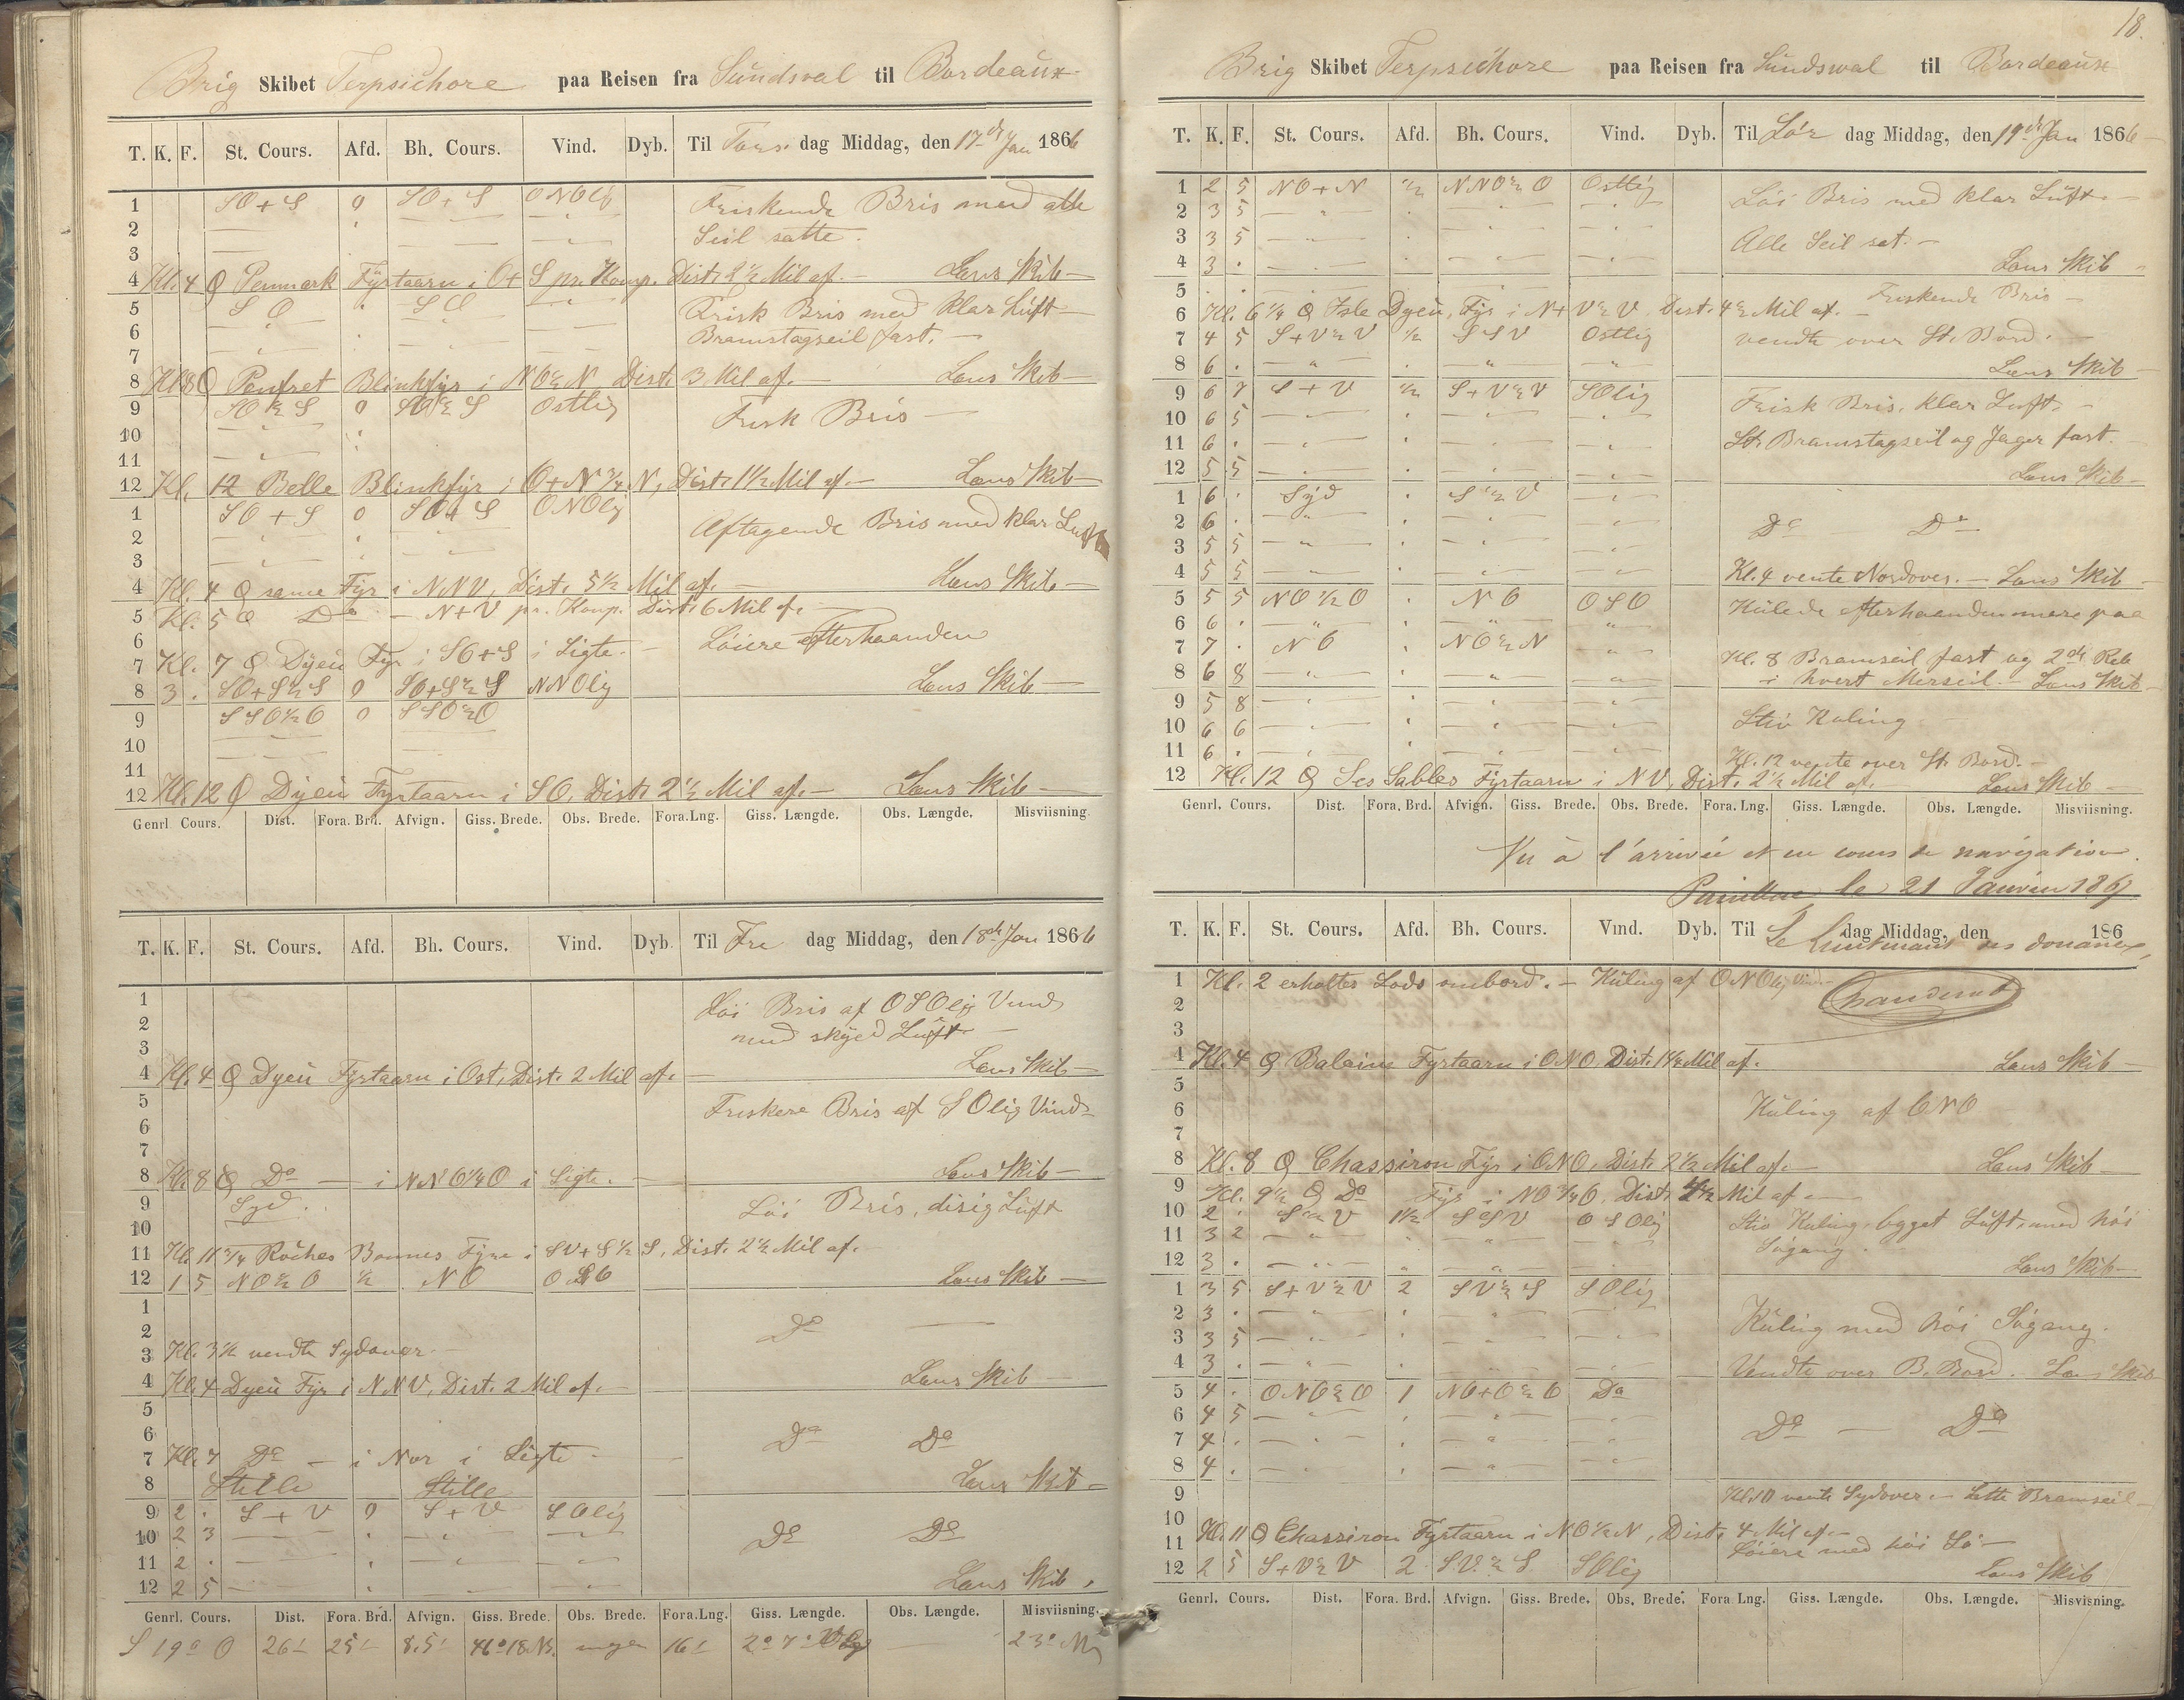 Brig Skibet Terpsichore paa Reisen fra Sundsval til Bordeaux
T. K. F. St. Cours. Afd. Bh. Cours. Vind. Dyb. Til Tors dag Middag, den 17de Jan 1866
1 SO+S 0 SO+S ONOlig Friskende Bris med alle
2 Seil satte.
3
4 Kl. 4 Penmark Fyrtaarn i O+S pr. Komp. Dist. 2½ Mil af. — Lens Skib —
5 SO " SO " Frisk Bris med klar Luft —
6 Bramstagseil fast. —
7
8 Kl. 8 Penfret Blinkfyr i NO½N Dist. 3 Mil af. — Lens Skib —
9 SO½S 0 SO½S Ostlig Frisk Bris —
10
11
12 Kl. 12 Belle Blinkfyr i O+N¾N, Dist. 1½ Mil af. — Lens Skib —
1 SO+S 0 SO+S ONOlig Aftagende Bris med klar Luft
2
3
4 Kl. 4 samme Fyr i NNV, Dist. 5½ Mil af. — Lens Skib —
5 Kl. 5 Do — N+V pr. Komp. Dist. 6 Mil af. —
6 Løiere efterhaanden
7 Kl. 7 Dyeu Fyr i SO+S i Sigte. —
8 3 . SO+S½S 0 SO+S½S NNOlig Lens Skib —
9 SSO½O 0 SSO½O
10
11
12 Kl. 12 Dyeu Fyrtaarn i SO, Dist. 2½ Mil af. — Lens Skib —
Genrl. Cours. Dist. Fora. Brd. Afvign. Giss. Brede. Obs. Brede. Fora. Lng. Giss. Længde. Obs. Længde. Misviisning.
T. K. F. St. Cours. Afd. Bh. Cours. Vind. Dyb. Til Fre dag Middag, den 18de Jan 1866
1 Løi Bris af OSOlig Vind
2 med skyed Luft —
3
4 Kl. 4 Dyeu Fyrtaarn i Ost, Dist. 2 Mil af. — Lens Skib —
5 Friskere Bris af SOlig Vind —
6
7
8 Kl. 8 Do — i NNO¼O i Sigte. — Lens Skib —
9 Syd. Løi Bris, disig Luft
10
11 Kl. 11¾ Roches Bonnes Fyre i SV+S½S, Dist. 2½ Mil af. —
12 1 5 NO½O ½ NO OSO Lens Skib —
1 Do —
2
3 Kl. 3½ vendte Sydover. —
4 Kl. 4 Dyeu Fyr i NNV, Dist. 2 Mil af. — Lens Skib —
5
6 Do Do
7 Kl. 7 Do — i Nor i Sigte —
8 Stille Stille Lens Skib —
9 2 . S+V 0 S+V SOlig
10 2 3 Do Do
11 2 .
12 2 5 Lens Skib .
Genrl. Cours. Dist. Fora. Brd. Afvign. Giss. Brede. Obs. Brede. Fora. Lng. Giss. Længde. Obs. Længde. Misviisning.
S 19° O 26' 25' 8.5' 46°18 N. ingen 16' 2°7' 23°
18.
Brig Skibet Terpsichore paa Reisen fra Sundswal til Bordeaux
T. K. F. St. Cours. Afd. Bh. Cours. Vind. Dyb. Til Lør dag Middag, den 19de Jan 1866
1 2 5 NO+N ½ NNO½O Ostlig Løi Bris med klar Luft. —
2 3 5
3 3 5 Alle Seil sat. —
4 3 . Lens Skib —
5 Friskende Bris —
6 Kl. 6¼ Isle Dyeu Fyr i N+V½V Dist. 4½ Mil af. —
7 4 5 S+V½V ½ SSV Ostlig vendte over St. Bord. —
8 6 . Lens Skib —
9 6 7 S+V ½ S+V½V SOlig Frisk Bris, klar Luft. —
10 6 5
11 6 . St. Bramstagseil og Jager fast. —
12 5 5 Lens Skib —
1 6 . Syd . S½V
2 6 . Do Do
3 5 5
4 5 5 Kl. 4 vente Nordover. — Lens Skib —
5 5 5 NO½O . NO OSO Kulede efterhaanden mere paa
6 6 .
7 7 . NO NO½N
8 6 8 Kl. 8 Bramseil fast og 2de Reb
i hvert Merseil. — Lens Skib —
9 5 8
10 6 6 Stiv Kuling
11 6 . Kl. 12 vente over St. Bord. —
12 Kl. 12 Les Sables Fyrtaarn i NV, Dist. 2½ Mil af. Lens Skib —
Genrl. Cours. Dist. Fora. Brd. Afvign. Giss. Brede. Obs. Brede. Fora. Lng. Giss. Længde. Obs. Længde. Misviisning.
Vu à l'arrivée et en cours de navigation.
le 21 Janvier 186
T. K. F. St. Cours. Afd. Bh. Cours. Vind. Dyb. Til dag Middag, den 186
Le Lieutenant des douanes,
1 Kl. 2 erholtes Lods ombord. — Kuling af ONOlig Vind
2
3
4 Kl. 4 Baleine Fyrtaarn i ONO, Dist. 1¼ Mil af. Lens Skib —
5
6 Kuling af ONO
7
8 Kl. 8 Chassiron Fyr i ONO, Dist. 2½ Mil af. — Lens Skib —
9 Kl. 9½ Do Fyr i NO¾O. Dist. 4½ Mil af. —
10 2 . S½V 1½ SSV OSOlig Stiv Kuling, bygget Luft, med høi
11 3 2 Søgang.
12 3 . Lens Skib —
1 3 5 S+V½V 2 SV½S SOlig
2 3 . Kuling med høi Søgang.
3 3 5
4 3 . Vendte over B. Bord. Lens Skib
5 4 . ONO½O 1 NO+O½O Do
6 4 5 Do — Do
7 4 .
8 4 .
9 Kl. 10 vente Sydover. — Satte Bramseil —
10
11 Kl. 11 Chassiron Fyrtaarn i NO½N, Dist. 4 Mil af. —
Løiere med høi Sø —
12 2 5 S+V½V 2 SV½S SOlig Lens Skib
Genrl. Cours. Dist. Fora. Brd. Afvign. Giss. Brede. Obs. Brede. Fora Lng. Giss. Længde. Obs. Længde. Misvisning.